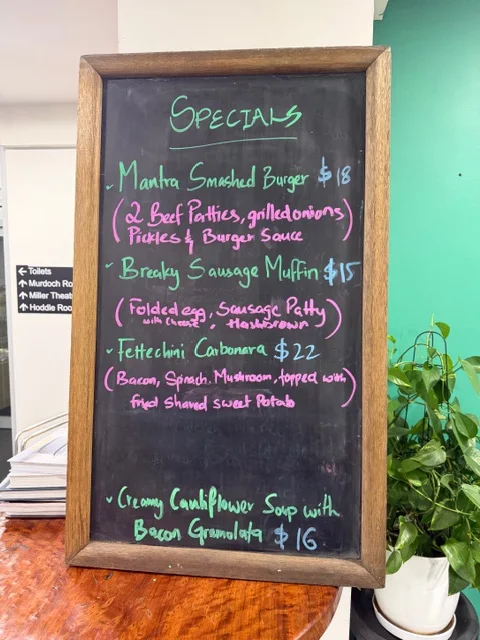 SPECIALS
Mantra Smashed Burger $18
(2 Beef Patties, grilled onions)
Pickles & Burger Sauce
Breaky Sausage Muffin $15
(Folded egg, Sausage Patty)
with cheese, Hashbrown
Fettechini Carbonara $22
(Bacon, Spinach, Mushroom, topped with)
fried Shaved sweet Potato
Creamy Cauliflower Soup with
Bacon Gramolata $16
← Toilets
↑ Murdoch Ro
↑ Miller Theat
↑ Hoddle Roo